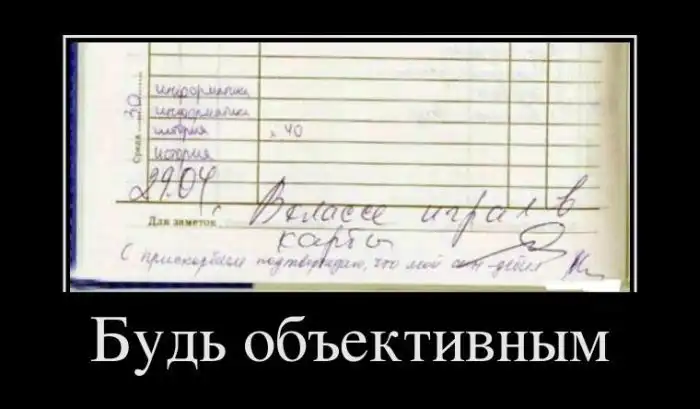 информатика
информатика
история
§ 40
история
Среда 30
29.04
В классе играл в
Для заметок
карты
С прискорбием подтверждаю, что мой сын-дебил
Будь объективным